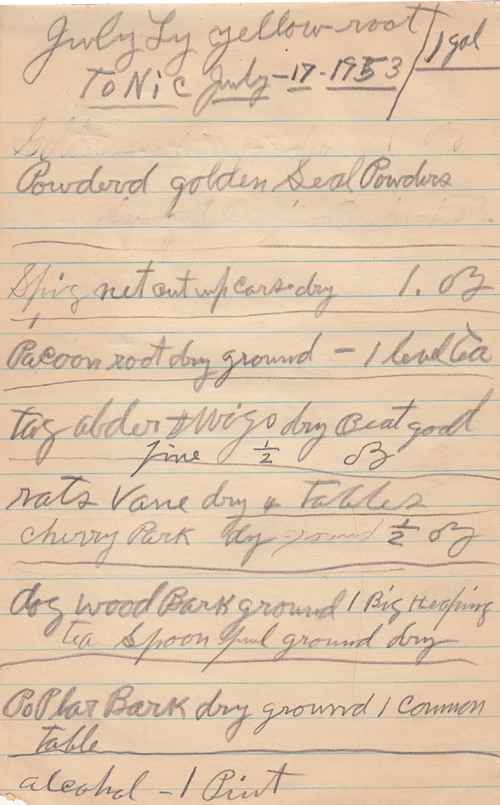 July Ty yellow-root / 1 gal
TONiC July-17-1953
Powderd golden Seal Powders
Spig net cut up cors.dry 1. oz
Pacoon root dry ground - 1 level tea
tag alder twigs dry Beat good
fine 1/2 oz
rats Vane dry 4 tables
cherry Park dy ground 1/2 oz
dog wood Bark ground 1 Big Heaping
tea Spoon full ground dry
PoPlar Bark dry ground 1 Common
table
alcohol - 1 Pint